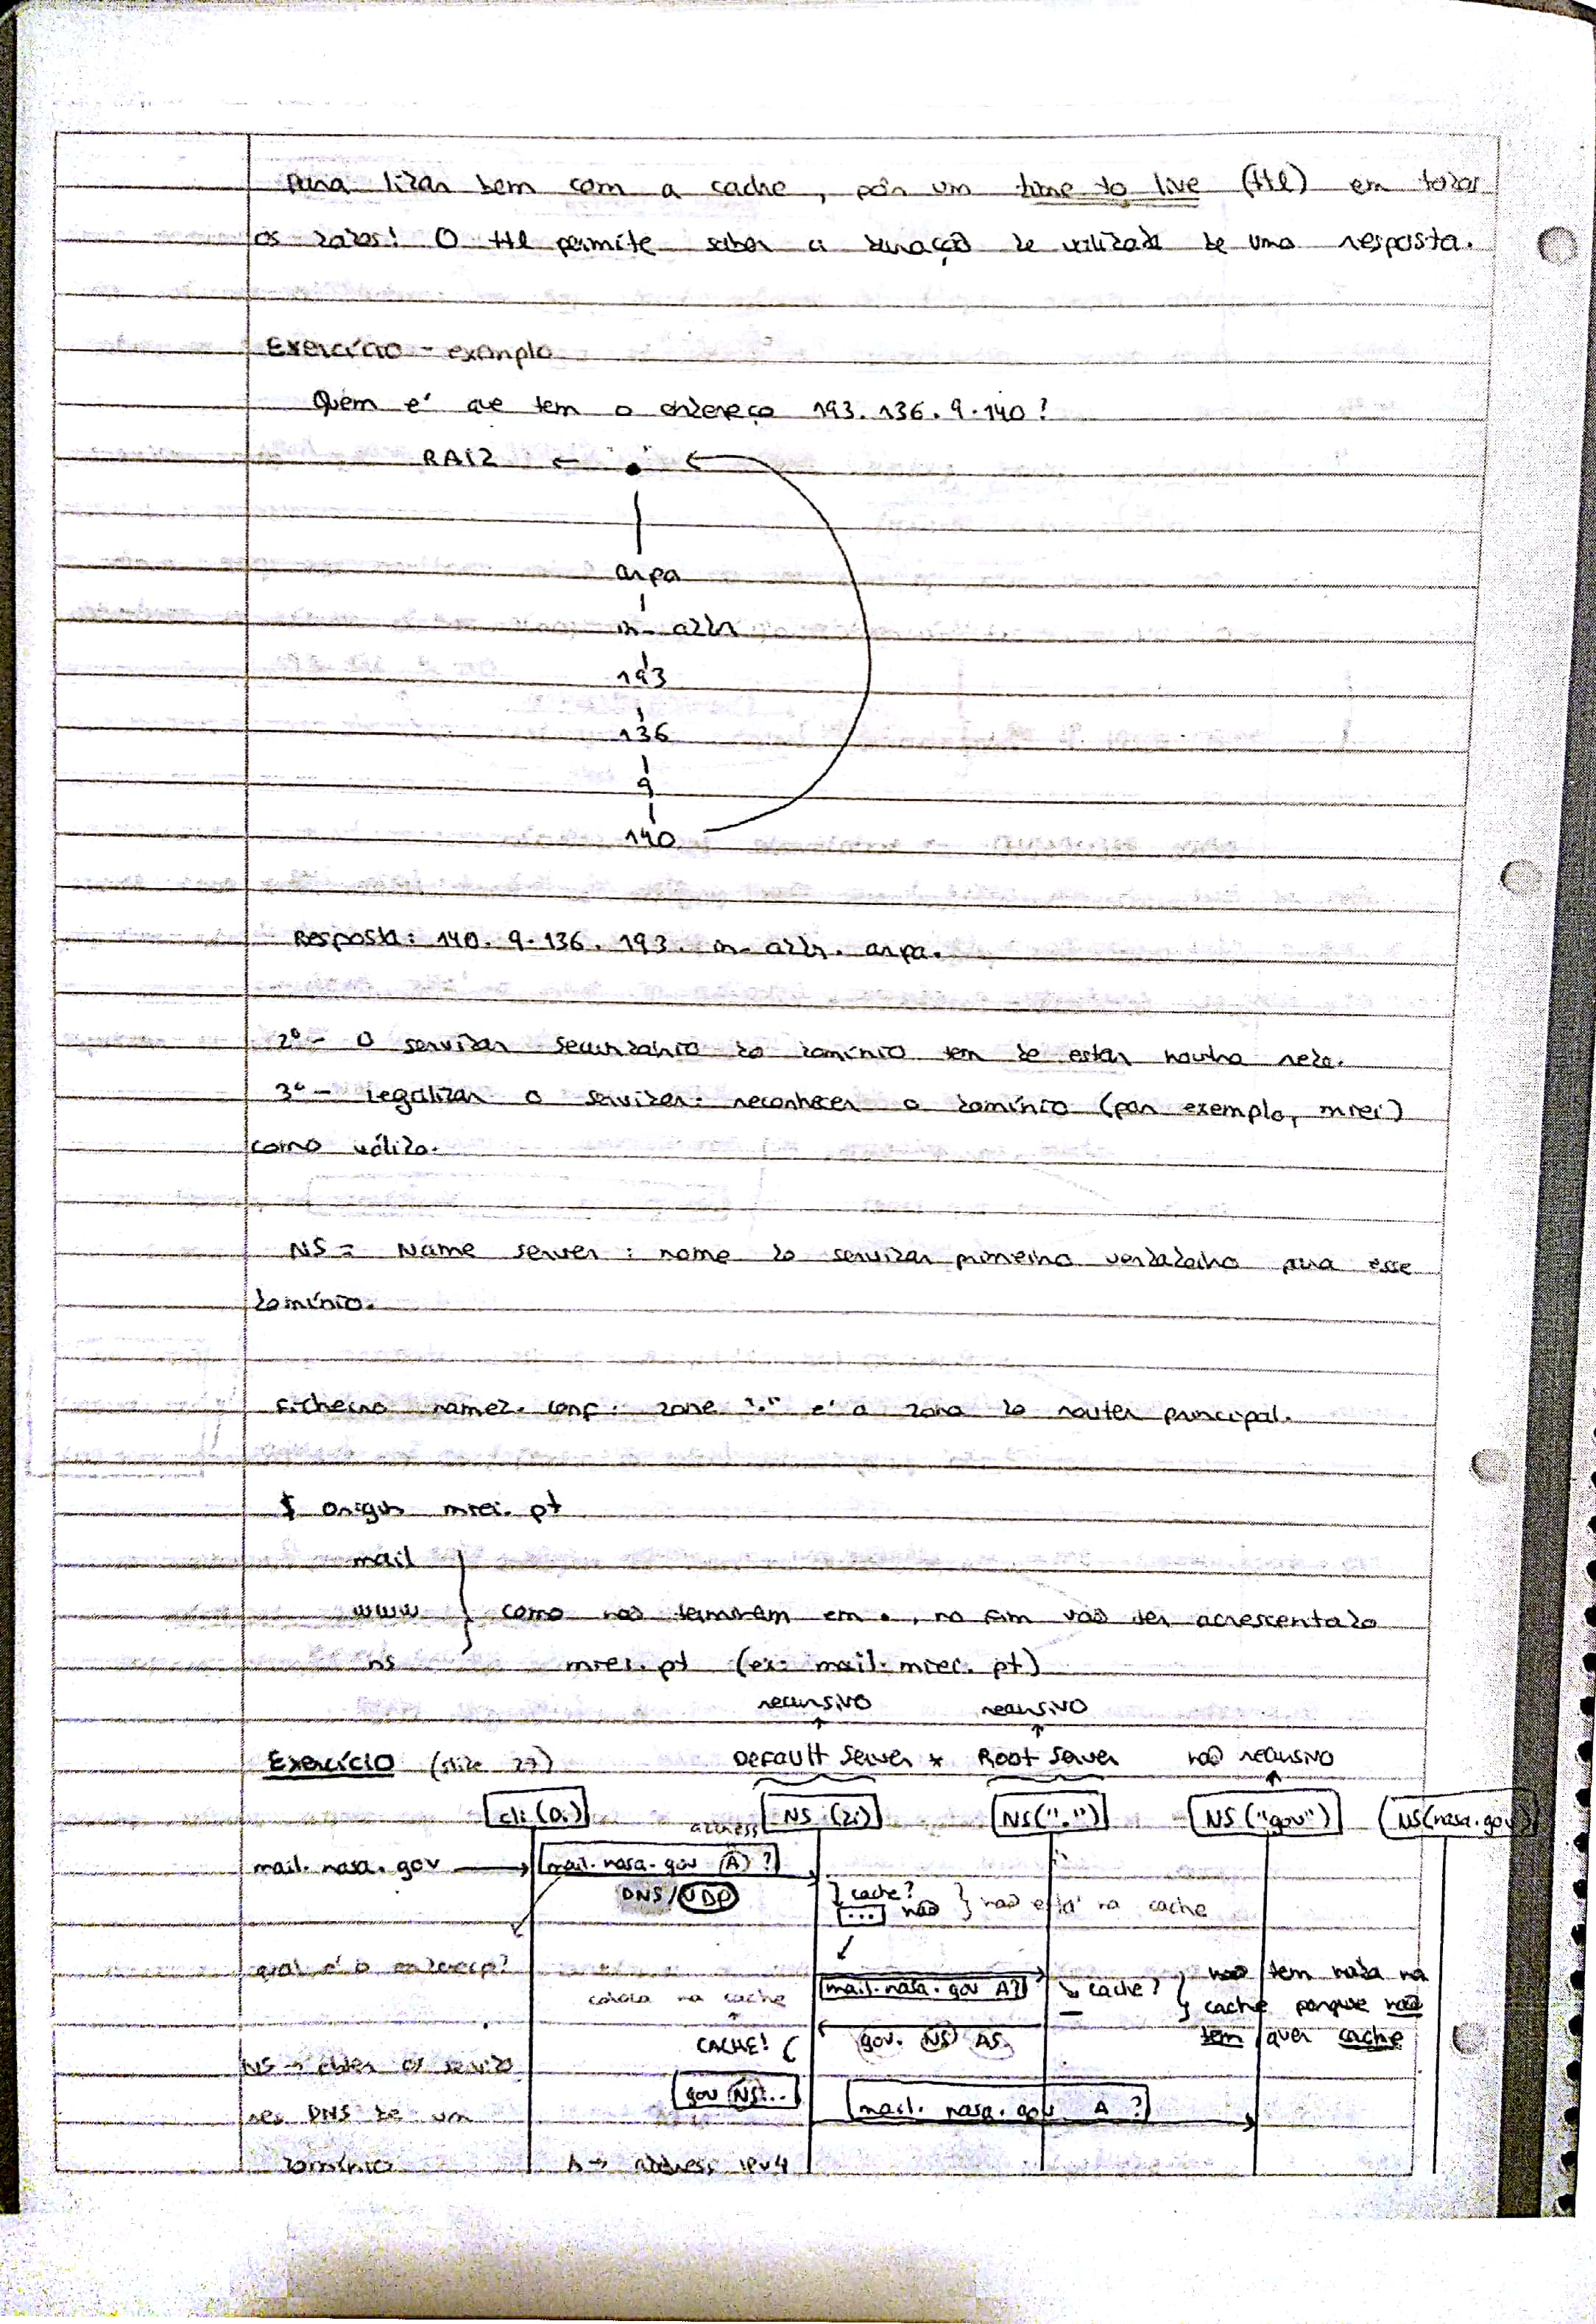 Para lidar bem com a cache, pôr um time to live (ttl) em todos
os dados! O ttl permite saber a duração de validade de uma resposta.
Exercício - exemplo
Quem é que tem o endereço 193.136.9.140?
RAIZ ← "."
arpa
in-addr
193
136
9
140
Resposta: 140.9.136.193.in-addr.arpa.
2º - O servidor secundário do domínio tem de estar noutra rede.
3º - Legalizar o servidor: reconhecer o domínio (por exemplo, mrei)
como válido.
NS = Name server : nome do servidor primeiro verdadeiro para esse
domínio.
Ficheiro named.conf: zone "." é a zona do router principal.
$ Origin mrei.pt
mail
www } como não terminam em ., no fim vão ter acrescentado
ns mrei.pt (ex: mail.mrei.pt)
recursivo recursivo
Exercício (slide 27) Default Server * Root Server não recursivo
cli (Di) NS (di) NS(".") NS ("gov") NS(nasa.gov)
address
mail.nasa.gov → mail.nasa.gov (A) ?
DNS/UDP } cache? } não está na cache
... não
qual é o endereço? mail.nasa.gov A? ↘ cache? } não tem nada na
coloca na cache cache porque não
CACHE! gov. NS AS. tem quer cache
NS → obter os servido
gov NS... mail.nasa.gov A ?
res DNS de um
domínio A → address ipv4